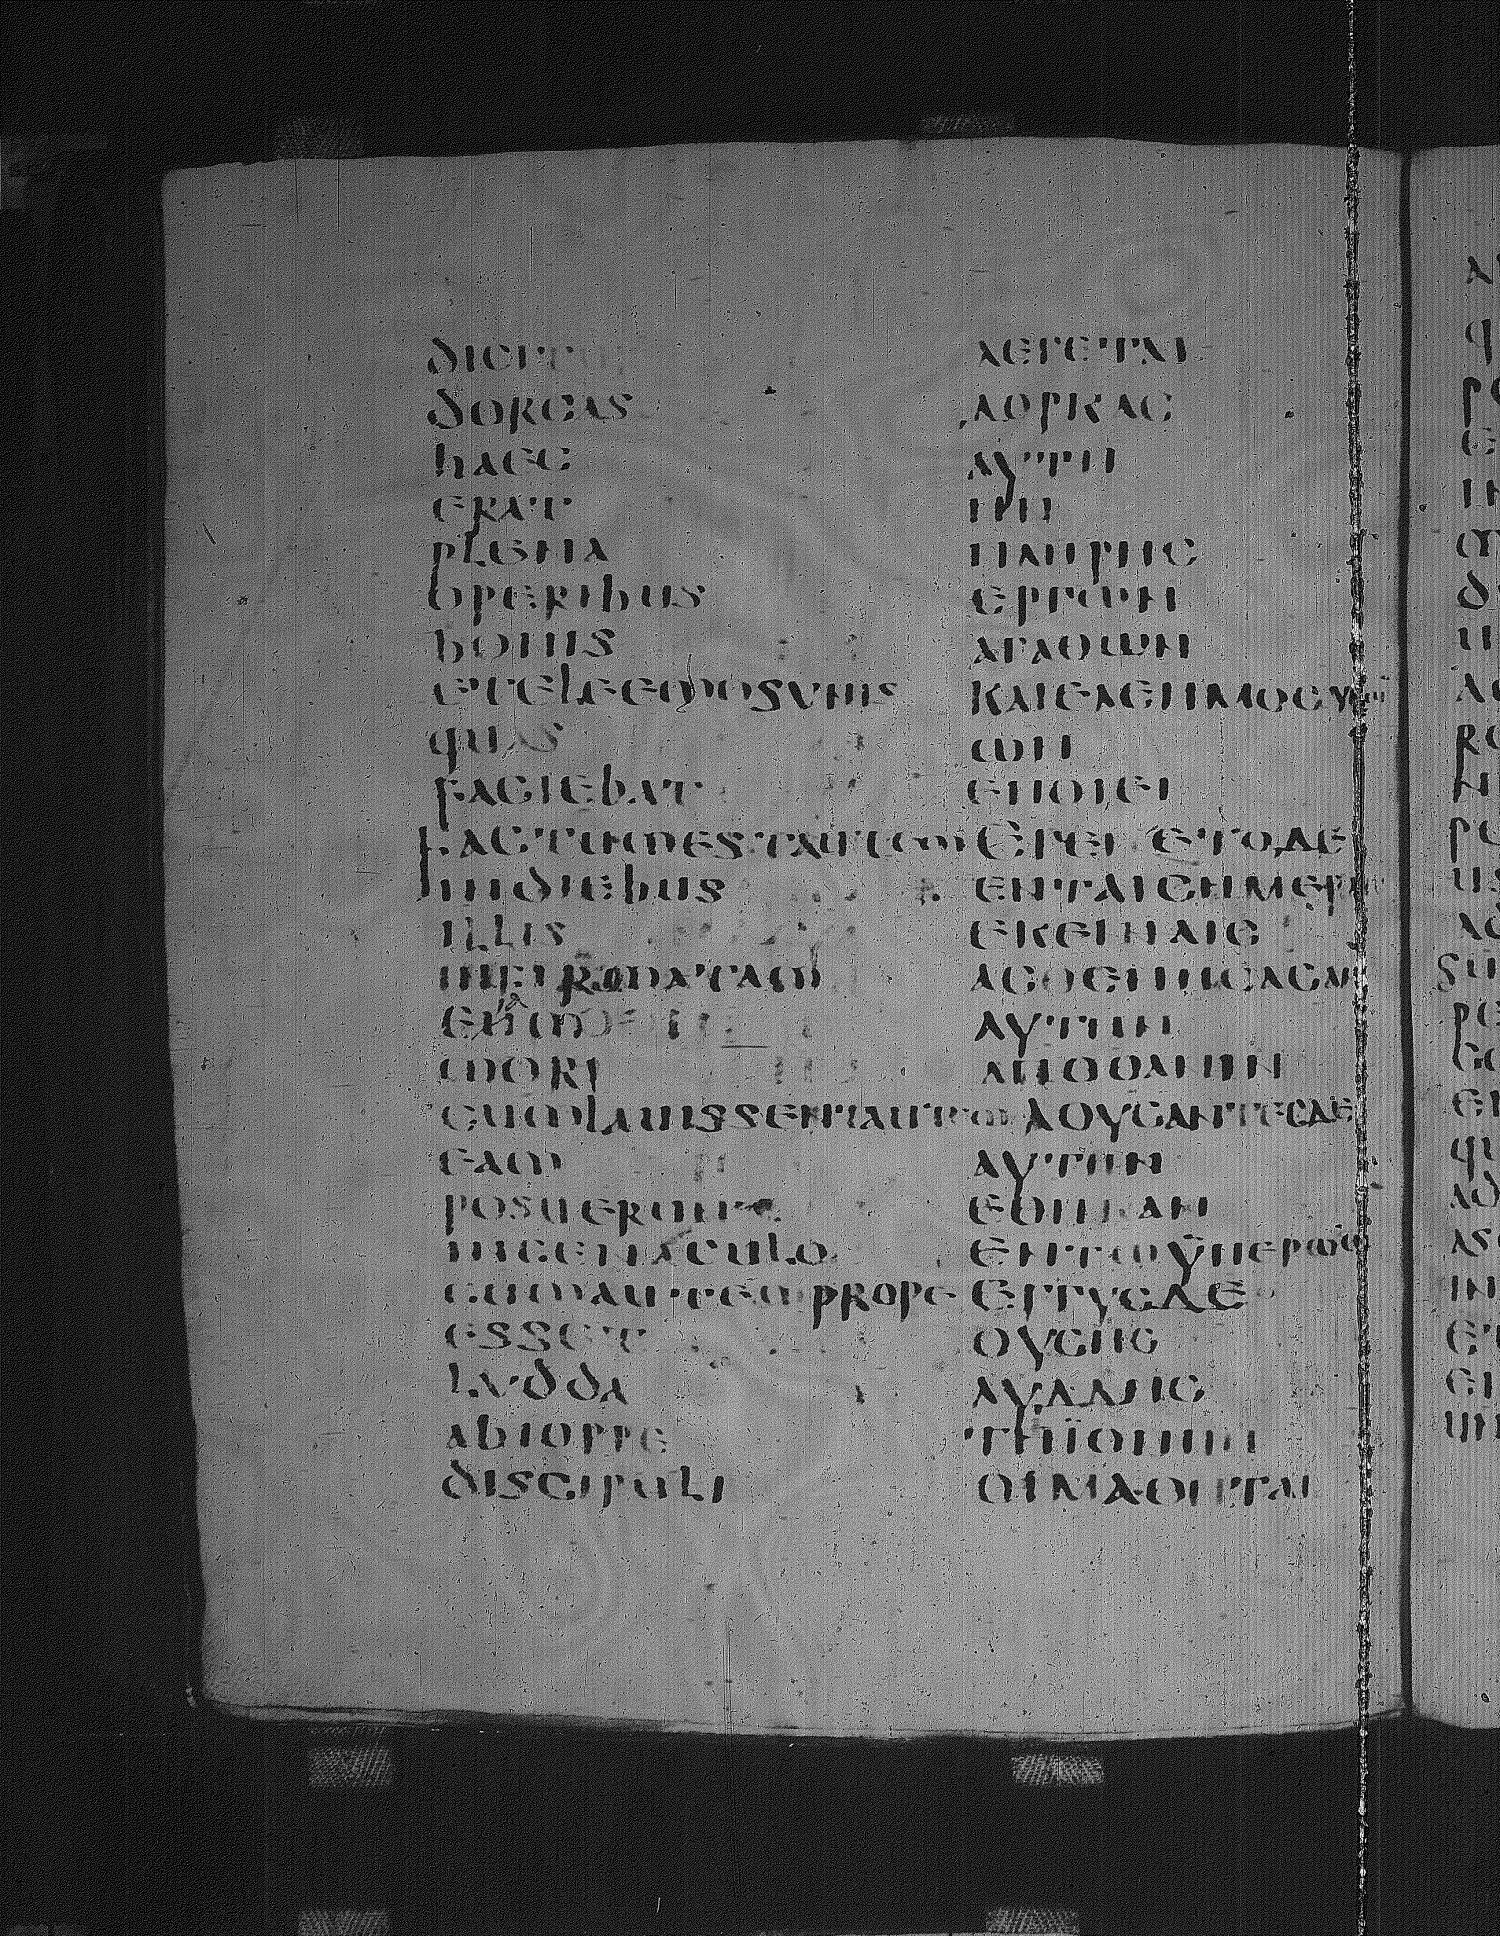 dicitur
dorcas
haec
erat
plena
operibus
bonis
eteleemosynis
quas
faciebat
factumestautem
indiebus
illis
infirmatam
mori
cumlauissentautem
eam
posuerunt
incenaculo
cumautem prope
esset
lydda
abioppe
discipuli
ΛΕΓΕΤΑΙ
ΔΟΡΚΑϹ
ΑΥΤΗ
ΗΝ
ΠΛΗΡΗϹ
ΕΡΓΩΝ
ΑΓΑΘΩΝ
ΚΑΙΕΛΕΗΜΟϹΥΝΩΝ
ΩΝ
ΕΠΟΙΕΙ
ΕΓΕΝΕΤΟΔΕ
ΕΝΤΑΙϹΗΜΕΡΑΙϹ
ΕΚΕΙΝΑΙϹ
ΑϹΘΕΝΗϹΑϹΑΝ
ΑΥΤΗΝ
ΑΠΟΘΑΝΙΝ
ΛΟΥϹΑΝΤΕϹΔΕ
ΑΥΤΗΝ
ΕΘΗΚΑΝ
ΕΝΤΩΫΠΕΡΩΩ
ΕΓΓΥϹΔΕ
ΟΥϹΗϹ
ΛΥΔΔΗϹ
ΤΗΪΟΠΠΗ
ΟΙΜΑΘΗΤΑΙ